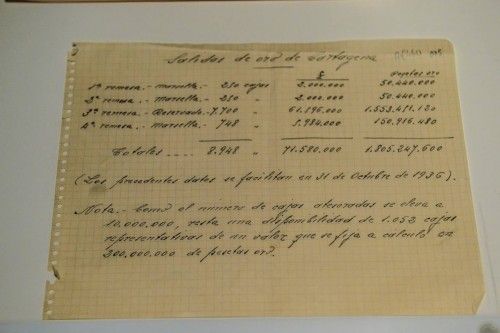 Salidas de oro de Cartagena
£ Pesetas oro
1ª remesa.- Marsella.- 250 cajas 2.000.000 50.440.000
2ª remesa.- Marsella.- 250 " 2.000.000 50.440.000
3ª remesa.- Reservado.- 7.700 " 61.596.000 1.553.451.120
4ª remesa.- Marsella.- 748 " 5.984.000 150.916.480
Totales .... 8.948 " 71.580.000 1.805.247.600
(Los precedentes datos se facilitan en 31 de Octubre de 1936).
Nota.- Como el número de cajas atesoradas se eleva a
10.000.000, resta una disponibilidad de 1.052 cajas
representativas de un valor que se fija a cálculo en
200.000.000 de pesetas oro.